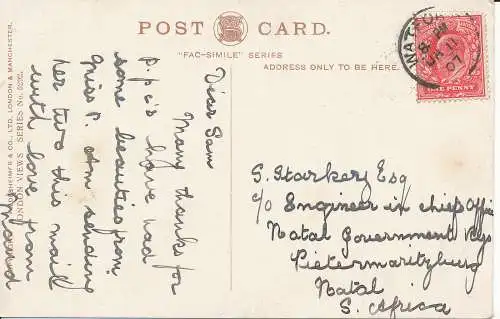 POST CARD.
"FAC-SIMILE" SERIES
ADDRESS ONLY TO BE HERE.
ONE PENNY
07
Dear Sam
Many thanks for
p.p.c's have had
some beauties from
Miss P. Am sending
her two this mail
with love from
Maand
S. Starkey Esq
c/o Engineer in chief Office
Natal Government Rlys
Pietermaritzburg
Natal
S. Africa
& CO., LTD., LONDON & MANCHESTER.
LONDON VIEWS SERIES No.